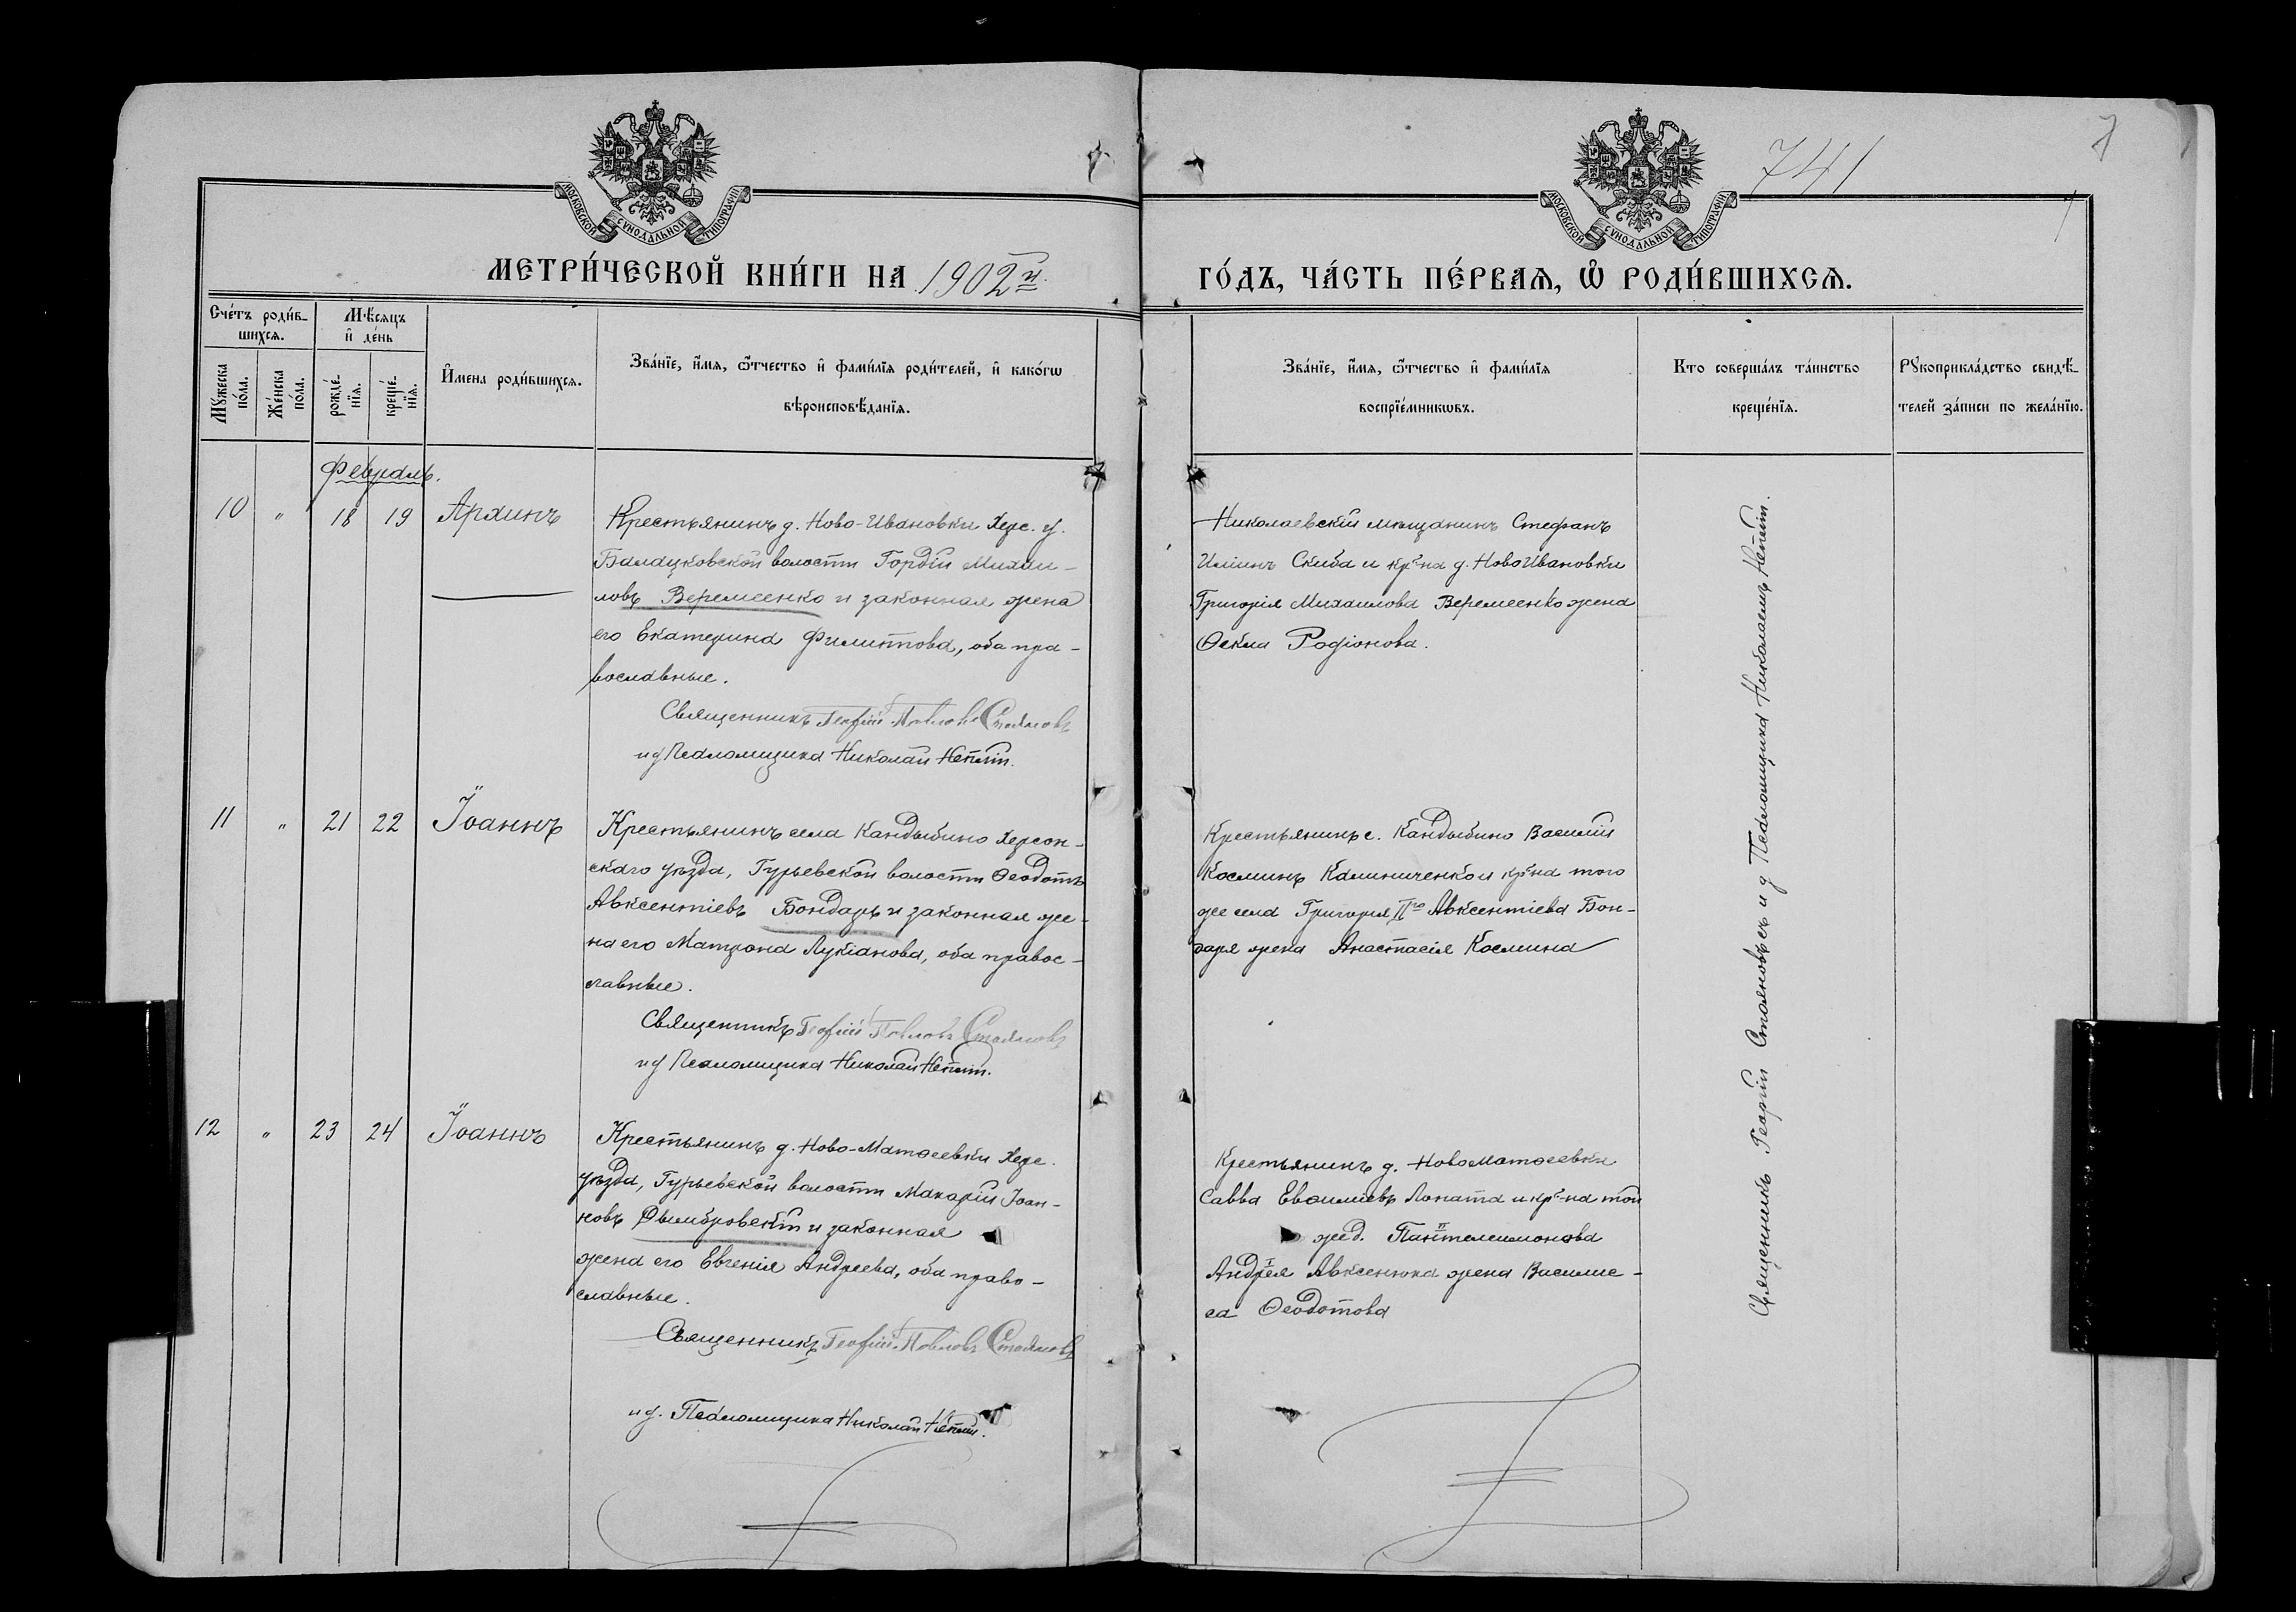 741
7
МОСКОВСКОЙ СѴНОДАЛЬНОЙ ТИПОГРАФІИ
МОСКОВСКОЙ СѴНОДАЛЬНОЙ ТИПОГРАФІИ
МЕТРИ́ЧЕСКОЙ КНИ́ГИ НА 1902й
ГО́ДЪ, ЧА́СТЬ ПЕ́РВАЯ, Ѽ РОДИ́ВШИХСЯ.
Сче́тъ роди́в-
шихся.
Мѣ́сяцъ
и҆ де́нь
Мꙋ́жеска
по́ла.
Же́нска
по́ла.
рожде́-
нїя.
креще́-
нїя.
И҆мена роди́вшихся.
Зва́нїе, и҆́мя, ѻ҆́тчество и҆ фами́лїя роди́телей, и҆ како́гѡ
вѣроисповѣ́данїя.
Зва́нїе, и҆́мя, ѻ҆́тчество и҆ фами́лїя
воспрїе́мникѡвъ.
Кто соверша́лъ та́инство
креще́нїя.
Рꙋкоприкла́дство свидѣ́-
телей за́писи по жела́нїю.
Февраль.
10 " 18 19 Архипъ
Крестьянинъ д. Ново-Ивановки Херс. у.
Балацковской волости Гордій Михаи-
ловъ Веремеенко и законная жена
его Екатерина Филиппова, оба пра-
вославные.
Священникъ Георгій Павловъ Стояновъ
и д Псаломщика Николай
Николаевскій мѣщанинъ Стефанъ
Иліинъ Скиба и кр-на д. НовоИвановки
Григорія Михаилова Веремеенко жена
Ѳекла Родіонова.
11 " 21 22 Іоаннъ
Крестьянинъ села Кандыбино Херсон-
скаго уѣзда, Гурьевской волости Ѳеодотъ
Авксентіевъ Бондарь и законная же-
на его Матрона Лукіанова, оба правос-
лавные.
Священникъ Георгій Павловъ Стояновъ
и д Псаломщика Николай
Крестьянинъ с. Кандыбино Василій
Косминъ Калиниченко и кр-на того
же села Григорія ІІго Авксентіева Бон-
даря жена Анастасія Космина
12 " 23 24 Іоаннъ
Крестьянинъ д. Ново-Матѳеевки Херс.
уѣзда, Гурьевской волости Макарій Іоан-
новъ Домбровскій и законная
жена его Евгенія Андреева, оба право-
славные.
Священникъ Георгій Павловъ Стояновъ
и д. Псаломщика Николай
Крестьянинъ д. НовоМатѳеевки
Савва Евѳиміевъ Лопата и кр-на той
же д. Пантелеимонова
Андрея Авксенюка жена Васили-
са Ѳеодотова
Священникъ Георгій Стояновъ съ и д Псаломщика Николаемъ